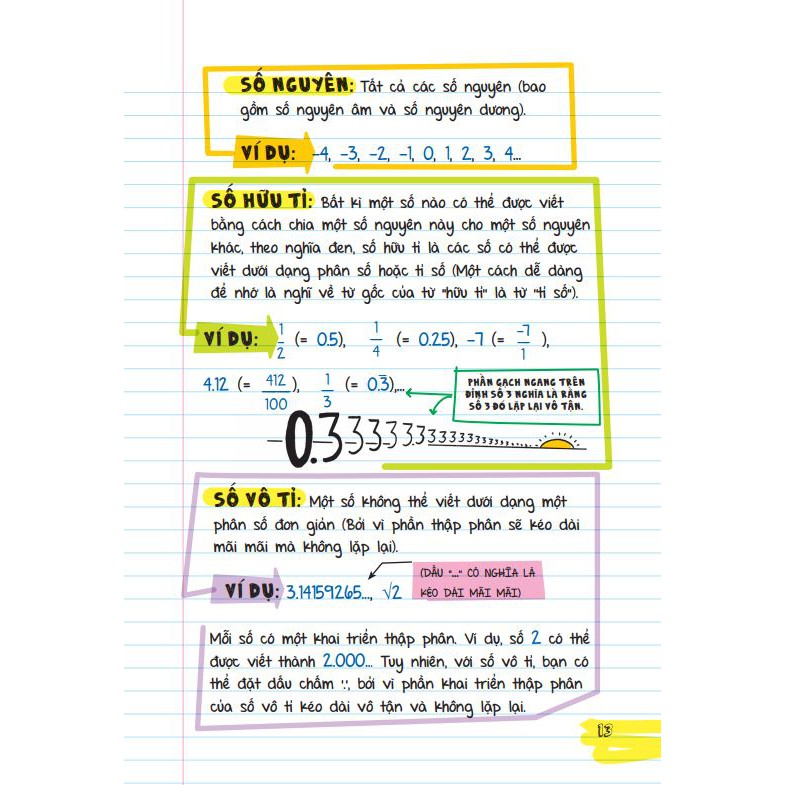 SỐ NGUYÊN: Tất cả các số nguyên (bao
gồm số nguyên âm và số nguyên dương).
VÍ DỤ: -4, -3, -2, -1, 0, 1, 2, 3, 4...
SỐ HỮU TỈ: Bất kì một số nào có thể được viết
bằng cách chia một số nguyên này cho một số nguyên
khác, theo nghĩa đen, số hữu tỉ là các số có thể được
viết dưới dạng phân số hoặc tỉ số (Một cách dễ dàng
để nhớ là nghĩ về từ gốc của từ "hữu tỉ" là từ "tỉ số").
VÍ DỤ: 1/2 (= 0.5), 1/4 (= 0.25), -7 (= -7/1 ),
4.12 (= 412/100 ), 1/3 (= 0.3̅),...
PHẦN GẠCH NGANG TRÊN
ĐỈNH SỐ 3 NGHĨA LÀ RẰNG
SỐ 3 ĐÓ LẶP LẠI VÔ TẬN.
0.33333.3333333333
SỐ VÔ TỈ: Một số không thể viết dưới dạng một
phân số đơn giản (Bởi vì phần thập phân sẽ kéo dài
mãi mãi mà không lặp lại).
VÍ DỤ: 3.14159265..., √2
(DẤU "..." CÓ NGHĨA LÀ
KÉO DÀI MÃI MÃI)
Mỗi số có một khai triển thập phân. Ví dụ, số 2 có thể
được viết thành 2.000... Tuy nhiên, với số vô tỉ, bạn có
thể đặt dấu chấm '.', bởi vì phần khai triển thập phân
của số vô tỉ kéo dài vô tận và không lặp lại.
13